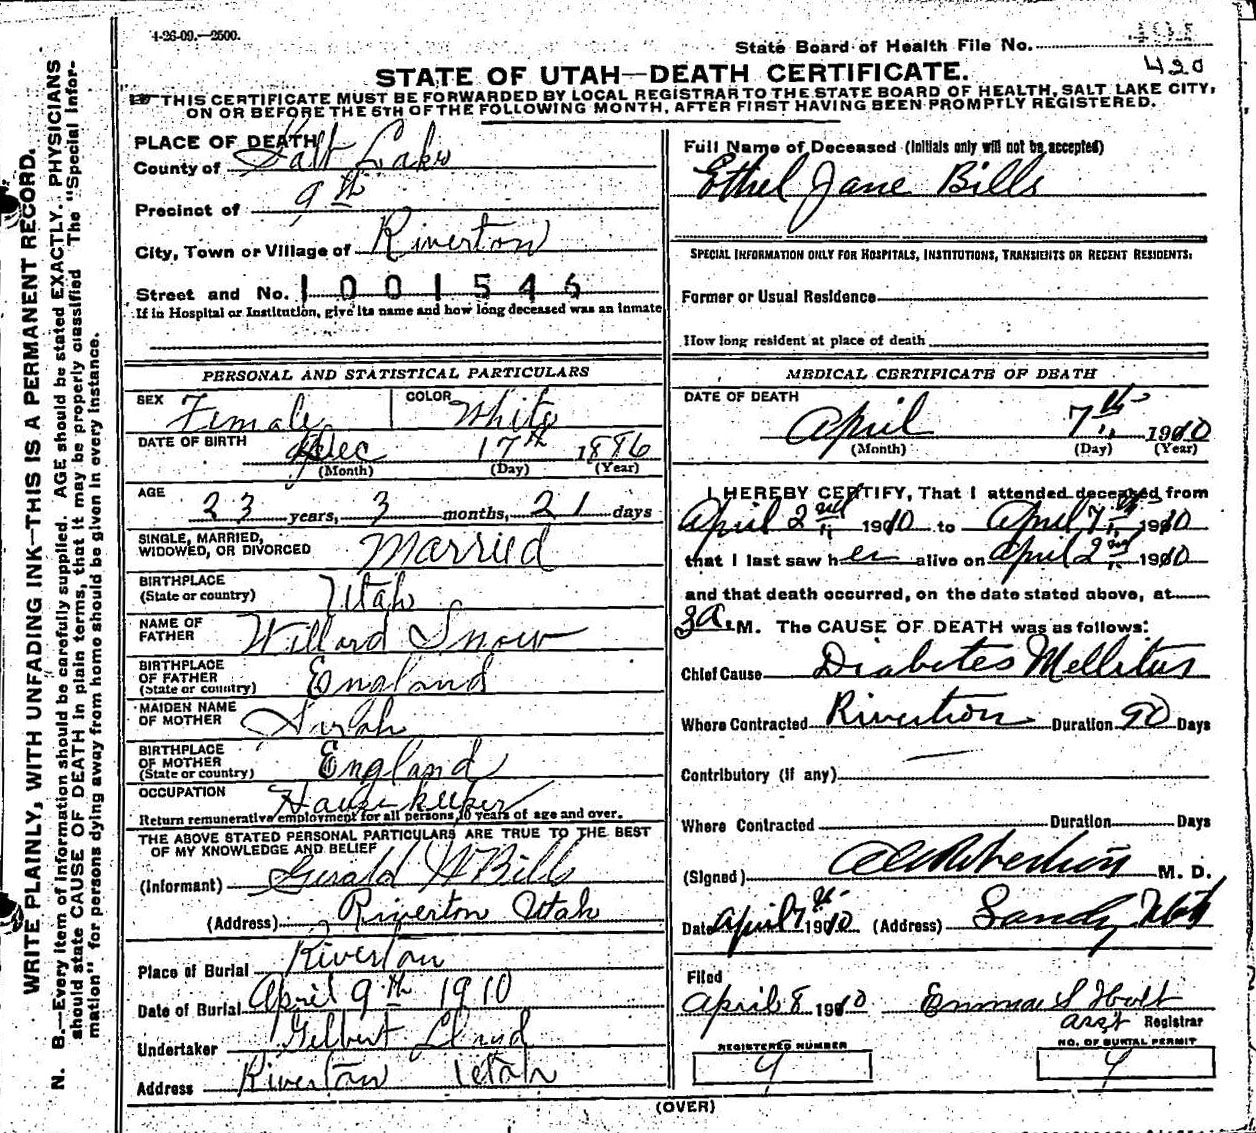 4-26-09.—2500.
State Board of Health File No.
420
STATE OF UTAH—DEATH CERTIFICATE.
THIS CERTIFICATE MUST BE FORWARDED BY LOCAL REGISTRAR TO THE STATE BOARD OF HEALTH, SALT LAKE CITY,
ON OR BEFORE THE 5TH OF THE FOLLOWING MONTH, AFTER FIRST HAVING BEEN PROMPTLY REGISTERED.
WRITE PLAINLY, WITH UNFADING INK—THIS IS A PERMANENT RECORD.
N. B.—Every item of information should be carefully supplied. AGE should be stated EXACTLY. PHYSICIANS
should state CAUSE OF DEATH in plain terms, that it may be properly classified. The "Special Infor-
mation" for persons dying away from home should be given in every instance.
PLACE OF DEATH
County of Salt Lake
Precinct of 9th
City, Town or Village of Riverton
Street and No. 1001546
If in Hospital or Institution, give its name and how long deceased was an inmate
PERSONAL AND STATISTICAL PARTICULARS
SEX Female COLOR White
DATE OF BIRTH Dec 17th 1886
(Month) (Day) (Year)
AGE 23 years, 3 months, 21 days
SINGLE, MARRIED,
WIDOWED, OR DIVORCED Married
BIRTHPLACE
(State or country) Utah
NAME OF
FATHER Willard Snow
BIRTHPLACE
OF FATHER
(State or country) England
MAIDEN NAME
OF MOTHER
BIRTHPLACE
OF MOTHER
(State or country) England
OCCUPATION Housekeeper
Return remunerative employment for all persons 10 years of age and over.
THE ABOVE STATED PERSONAL PARTICULARS ARE TRUE TO THE BEST
OF MY KNOWLEDGE AND BELIEF
(Informant) Gerald W Bills
(Address) Riverton Utah
Place of Burial Riverton
Date of Burial April 9th 1910
Undertaker Gilbert
Address Riverton Utah
Full Name of Deceased (Initials only will not be accepted)
Ethel Jane Bills
SPECIAL INFORMATION ONLY FOR HOSPITALS, INSTITUTIONS, TRANSIENTS OR RECENT RESIDENTS:
Former or Usual Residence
How long resident at place of death
MEDICAL CERTIFICATE OF DEATH
DATE OF DEATH
April 7th 1910
(Month) (Day) (Year)
I HEREBY CERTIFY, That I attended deceased from
April 2nd 1910 to April 7th 1910
that I last saw her alive on April 2nd 1910
and that death occurred, on the date stated above, at
3 A. M. The CAUSE OF DEATH was as follows:
Chief Cause Diabetes Mellitus
Where Contracted Rivertion Duration 90 Days
Contributory (if any) —
Where Contracted Duration Days
(Signed) Robertson M. D.
Date April 7th 1910 (Address) Sandy Utah
Filed
April 8 1910 Emma S Holt
asst Registrar
REGISTERED NUMBER
9
NO. OF BURIAL PERMIT
9
(OVER)